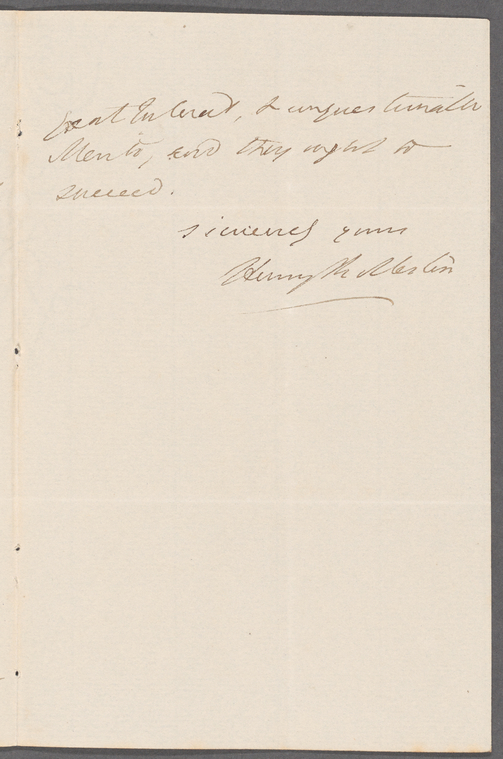 great Interest, & unquestionable
Merits, and they ought to
succeed.
sincerely yours
Henry